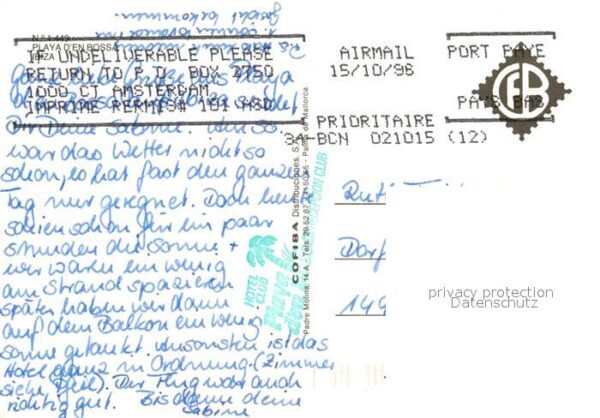 gesicht bekommen.
P.S.
Nº 1.449
PLAYA D'EN BOSSA
IBIZA
IF UNDELIVERABLE PLEASE
RETURN TO P.O. BOX 2750
1000 CJ AMSTERDAM
IMPRIME PERMIS# 101 ASD
AIRMAIL PORT PAYE
15/10/96
PAYS BAS
PRIORITAIRE
34-BCN 021015 (12)
CFB
Ganz
sendet
Dir Deine Sabine.
war das Wetter nicht so
schön, es hat fast den ganzen
Tag nur geregnet. Doch heute
schien schon für ein paar
Stunden die Sonne +
wir waren ein wenig
am Strand spazieren
später haben wir dann
auf dem Balkon ein wenig
Sonne getankt. Ansonsten ist das
Hotel ganz in Ordnung. (Zimmer
siehe Pfeil). Der Flug war auch
richtig gut. Bis dann deine
Sabine
HOTEL
CLUB
Playa
COFIBA Distribuciones, S.
Padre Molina, 14 A - Tels. 29 52 87 - Palma de Mallorca
RECEPCION CLUB
Dorf
149
privacy protection
Datenschutz